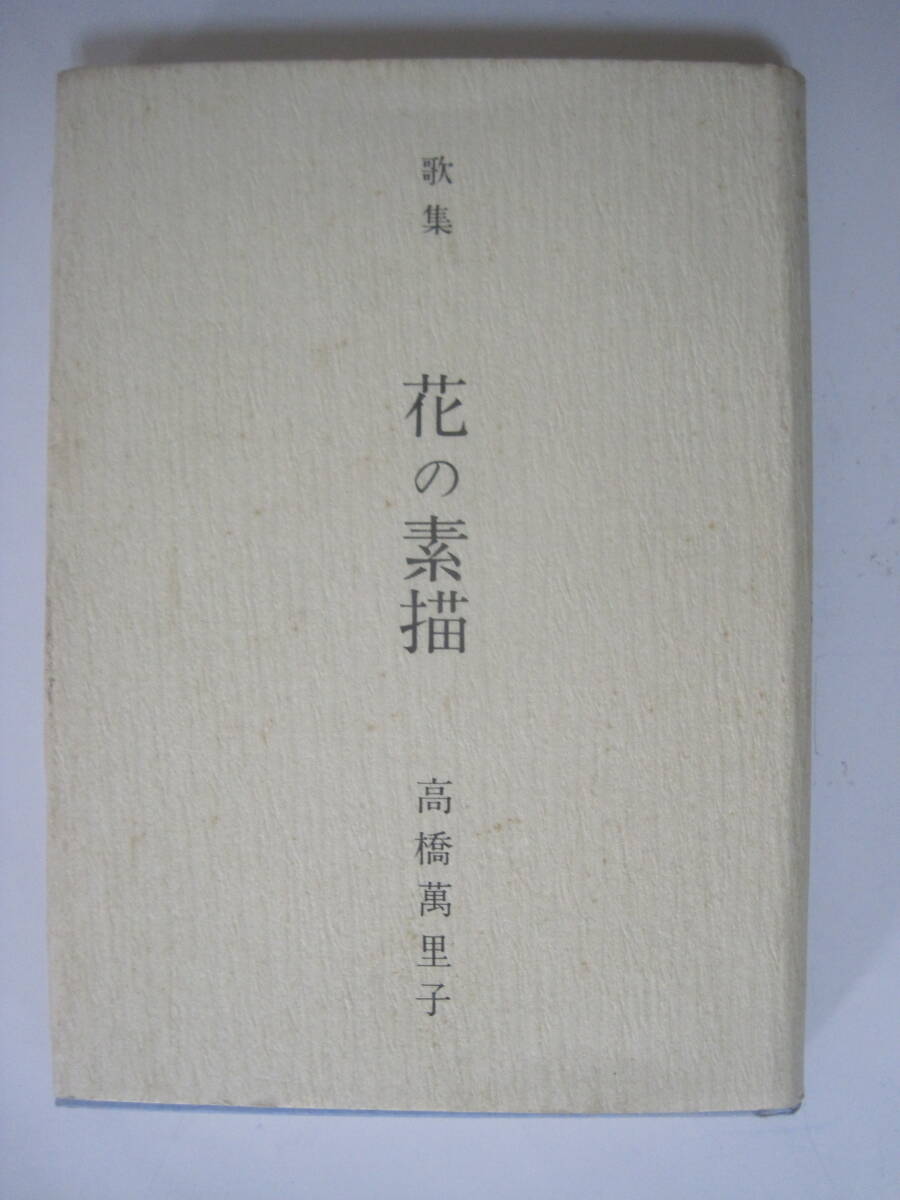 歌集 花の素描 高橋萬里子